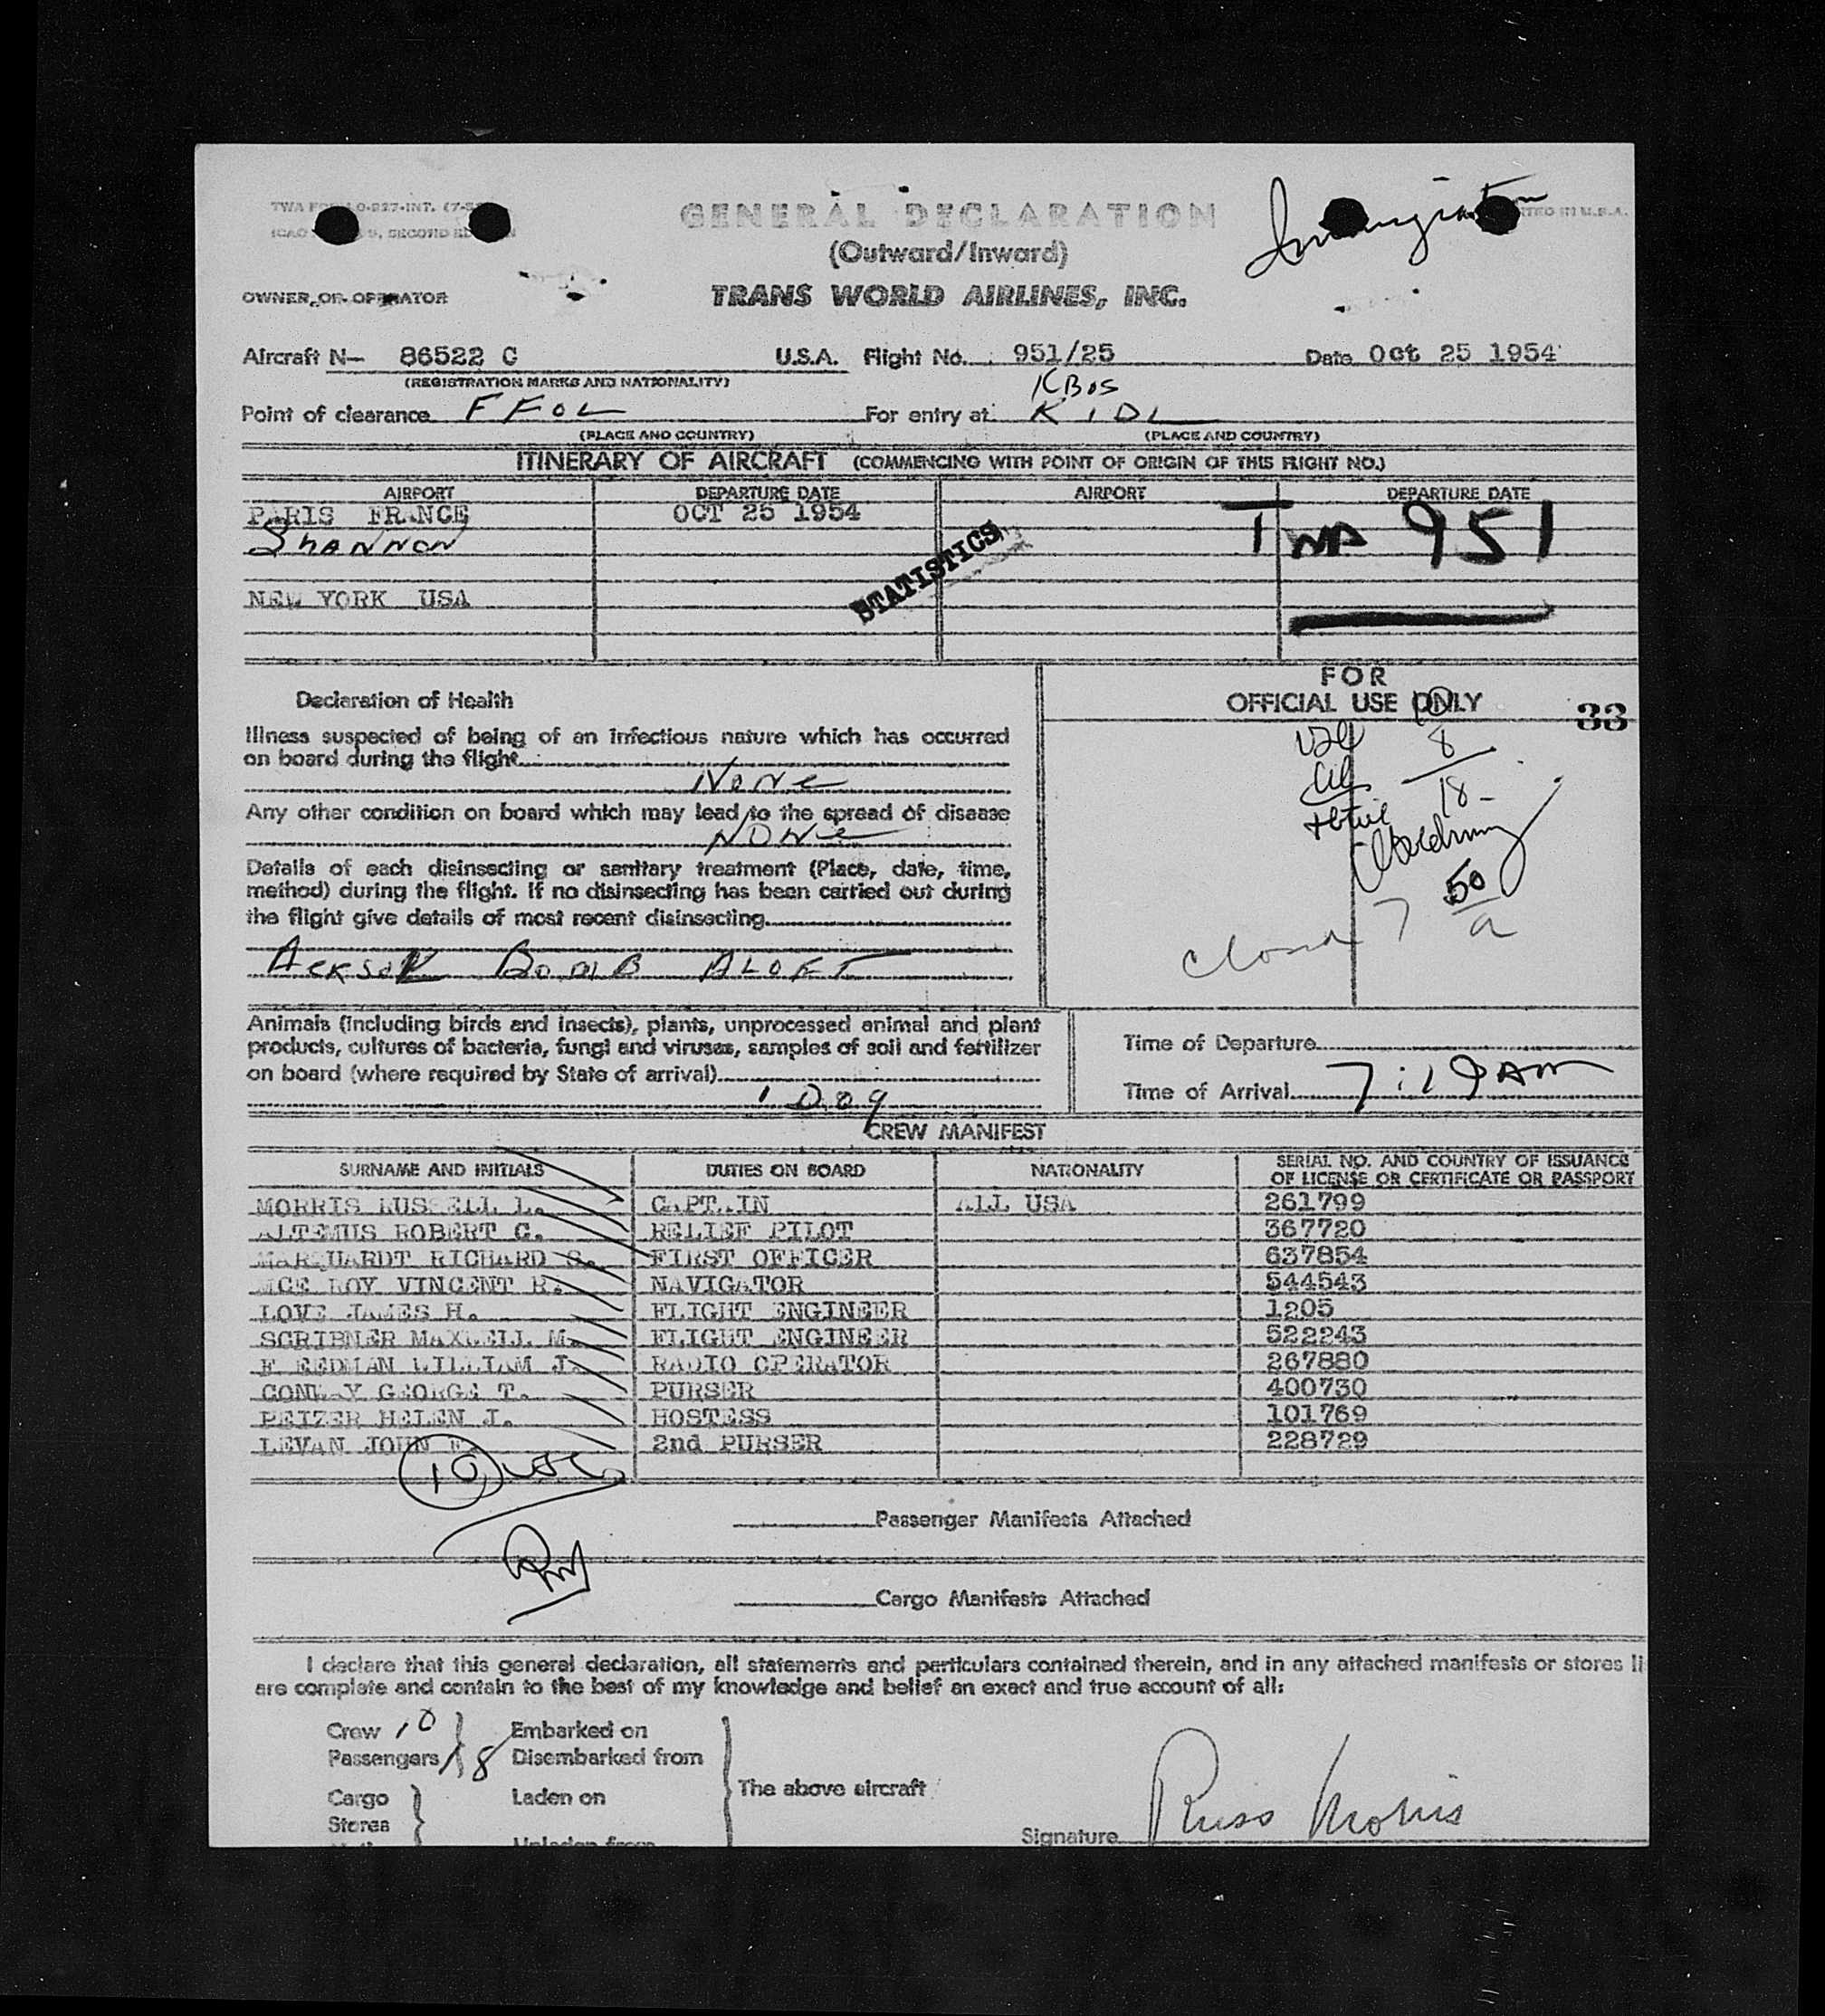 GENERAL DECLARATION
(Outward/Inward)
OWNER OR OPERATOR
TRANS WORLD AIRLINES, INC.
Aircraft N— 86522 C U.S.A. Flight No. 951/25 Date Oct 25 1954
(REGISTRATION MARKS AND NATIONALITY)
KBOS
Point of clearance FFOL For entry at KIDL
(PLACE AND COUNTRY) (PLACE AND COUNTRY)
ITINERARY OF AIRCRAFT (COMMENCING WITH POINT OF ORIGIN OF THIS FLIGHT NO.)
AIRPORT DEPARTURE DATE AIRPORT DEPARTURE DATE
PARIS FRANCE OCT 25 1954
SHANNON
TWA 951
STATISTICS
NEW YORK USA
FOR
OFFICIAL USE ONLY
33
8
18-
50
a
Closed 7
Declaration of Health
Illness suspected of being of an infectious nature which has occurred
on board during the flight
None
Any other condition on board which may lead to the spread of disease
NONE
Details of each disinsecting or sanitary treatment (Place, date, time,
method) during the flight. If no disinsecting has been carried out during
the flight give details of most recent disinsecting
BOMB ALOFT
Animals (including birds and insects), plants, unprocessed animal and plant
products, cultures of bacteria, fungi and viruses, samples of soil and fertilizer
on board (where required by State of arrival)
1 Dog
Time of Departure
Time of Arrival 7:19 AM
CREW MANIFEST
SURNAME AND INITIALS DUTIES ON BOARD NATIONALITY SERIAL NO. AND COUNTRY OF ISSUANCE
OF LICENSE OR CERTIFICATE OR PASSPORT
MORRIS RUSSELL L. CAPTAIN ALL USA 261799
ALTEMUS ROBERT G. RELIEF PILOT 367720
MARQUARDT RICHARD S. FIRST OFFICER 637854
MCE ROY VINCENT R. NAVIGATOR 544543
LOVE JAMES H. FLIGHT ENGINEER 1205
SCRIBNER MAXWELL M. FLIGHT ENGINEER 522243
FREEDMAN WILLIAM J. RADIO OPERATOR 267880
CONWAY GEORGE T. PURSER 400730
PEIZER HELEN J. HOSTESS 101769
LEVAN JOHN F. 2nd PURSER 228729
10
Passenger Manifests Attached
Cargo Manifests Attached
I declare that this general declaration, all statements and particulars contained therein, and in any attached manifests or stores li
are complete and contain to the best of my knowledge and belief an exact and true account of all:
Crew 10 Embarked on
Passengers 18 Disembarked from
Cargo Laden on The above aircraft
Stores
Signature Russ Morris